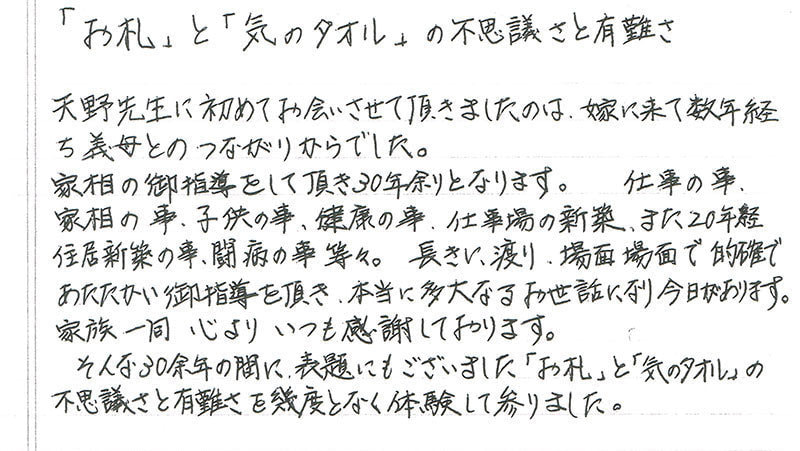 「お札」と「気のタオル」の不思議さと有難さ
天野先生に初めてお会いさせて頂きましたのは、嫁に来て数年経
ち義母とのつながりからでした。
家相の御指導をして頂き30年余りとなります。 仕事の事、
家相の事、子供の事、健康の事、仕事場の新築、また20年経
住居新築の事、闘病の事等々。 長きに渡り、場面場面で的確で
あたたかい御指導を頂き、本当に多大なるお世話になり今日があります。
家族一同 心より いつも感謝しております。
そんな30余年の間に、表題にもございました「お札」と「気のタオル」の
不思議さと有難さを幾度となく体験して参りました。